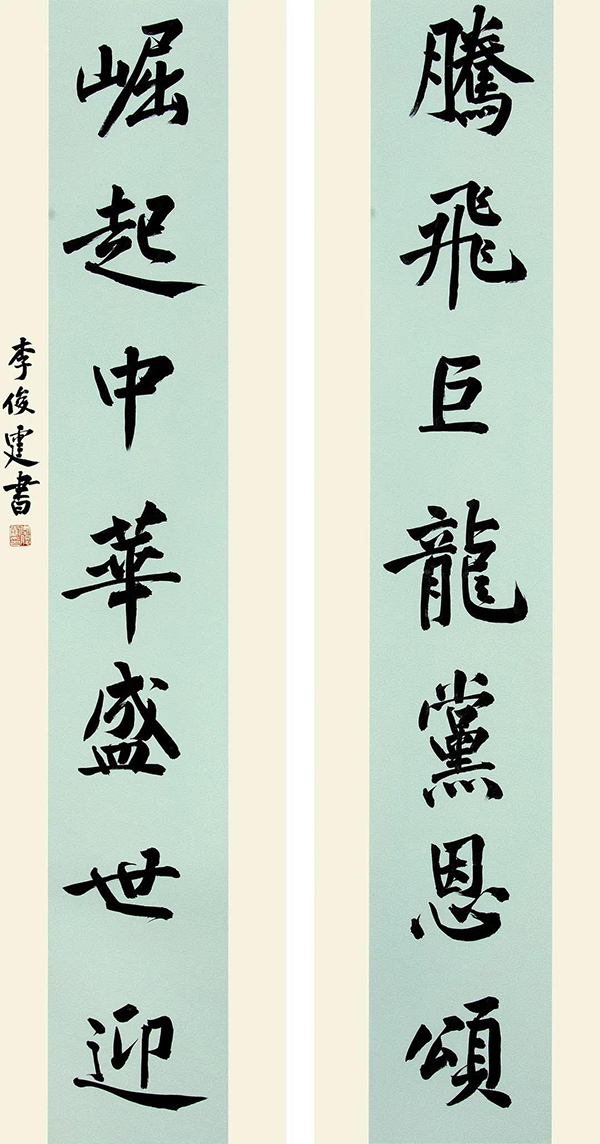 騰飛巨龍黨恩頌
崛起中華盛世迎
李俊霆書